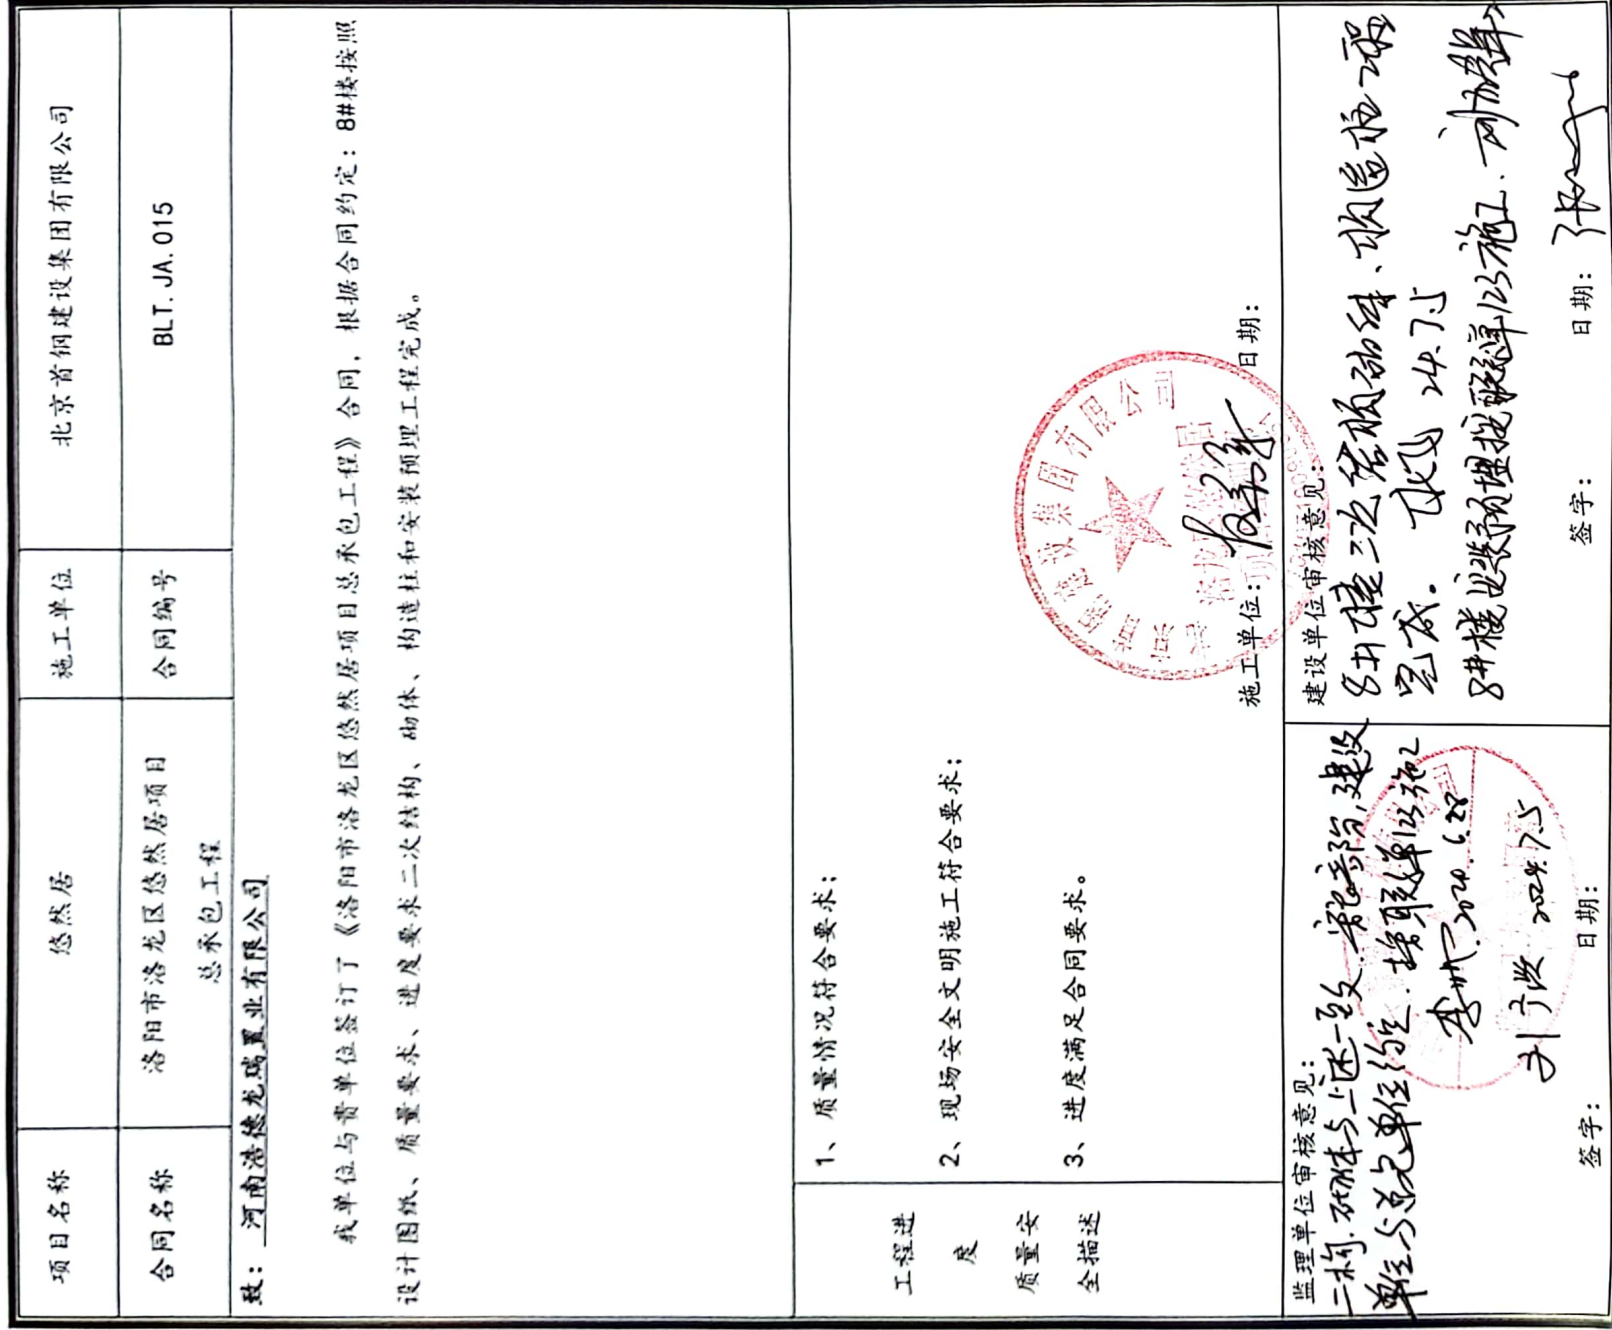 项目名称
悠然居
施工单位
北京首钢建设集团有限公司
合同名称
洛阳市洛龙区悠然居项目
总承包工程
合同编号
BLT.JA.015
致：河南浩德龙瑞置业有限公司
我单位与贵单位签订了《洛阳市洛龙区悠然居项目总承包工程》合同，根据合同约定：8#楼按照
设计图纸、质量要求、进度要求二次结构、砌体、构造柱和安装预埋工程完成。
工程进
度
质量安
全描述
1、质量情况符合要求；
2、现场安全文明施工符合要求；
3、进度满足合同要求。
施工单位：
日期：
首钢建设集团有限公司
监理单位审核意见：
二构.砌体与上述一致.建设
单位与总包单位约定.按联系单123施工
2024.6.28
2024.7.5
签字：
日期：
建设单位审核意见：
8#楼二次结构砌体、构造柱工程
完成。
24.7.5
8#楼安装预埋按联系单123施工.
签字：
日期：